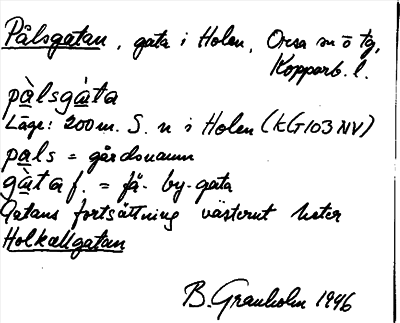 Pålsgatan, gata i Holen, Orsa sn ö tg,
Kopparb. l.
pàlsgàta
Läge: 200 m. S. n i Holen (KG103 NV)
pals = gårdsnamn
gàta f. = fä- by-gata
Gatans fortsättning västerut heter
Holkallgatan
B. Granholm 1946